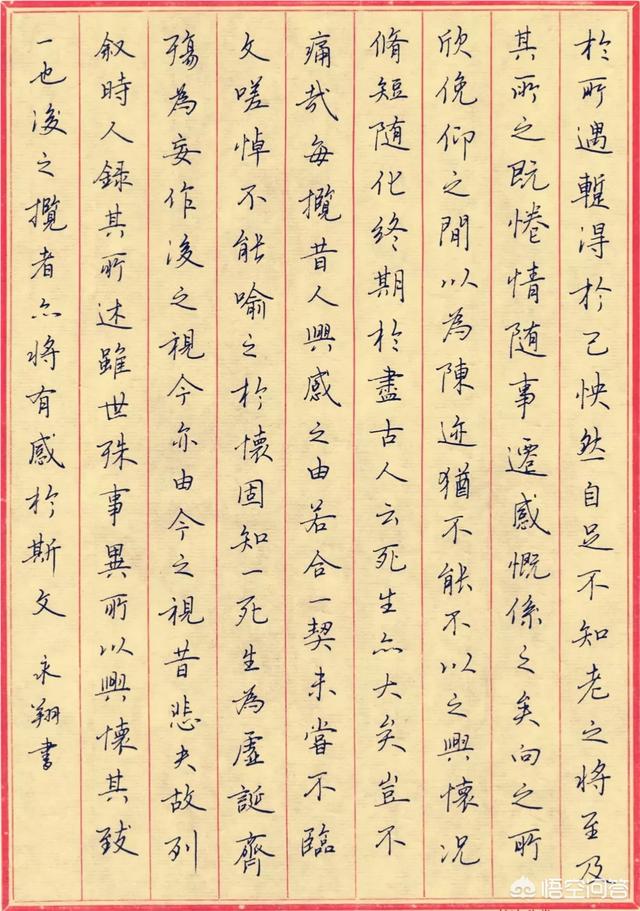 於所遇蹔得於己怏然自足不知老之將至及
其所之既惓情隨事遷感慨係之矣向之所
欣俛仰之閒以為陳迹猶不能不以之興懷況
脩短隨化終期於盡古人云死生亦大矣豈不
痛哉每攬昔人興感之由若合一契未嘗不臨
文嗟悼不能喻之於懷固知一死生為虛誕齊
殤為妄作後之視今亦由今之視昔悲夫故列
叙時人錄其所述雖世殊事異所以興懷其致
一也後之攬者亦將有感於斯文 永翔書
悟空问答